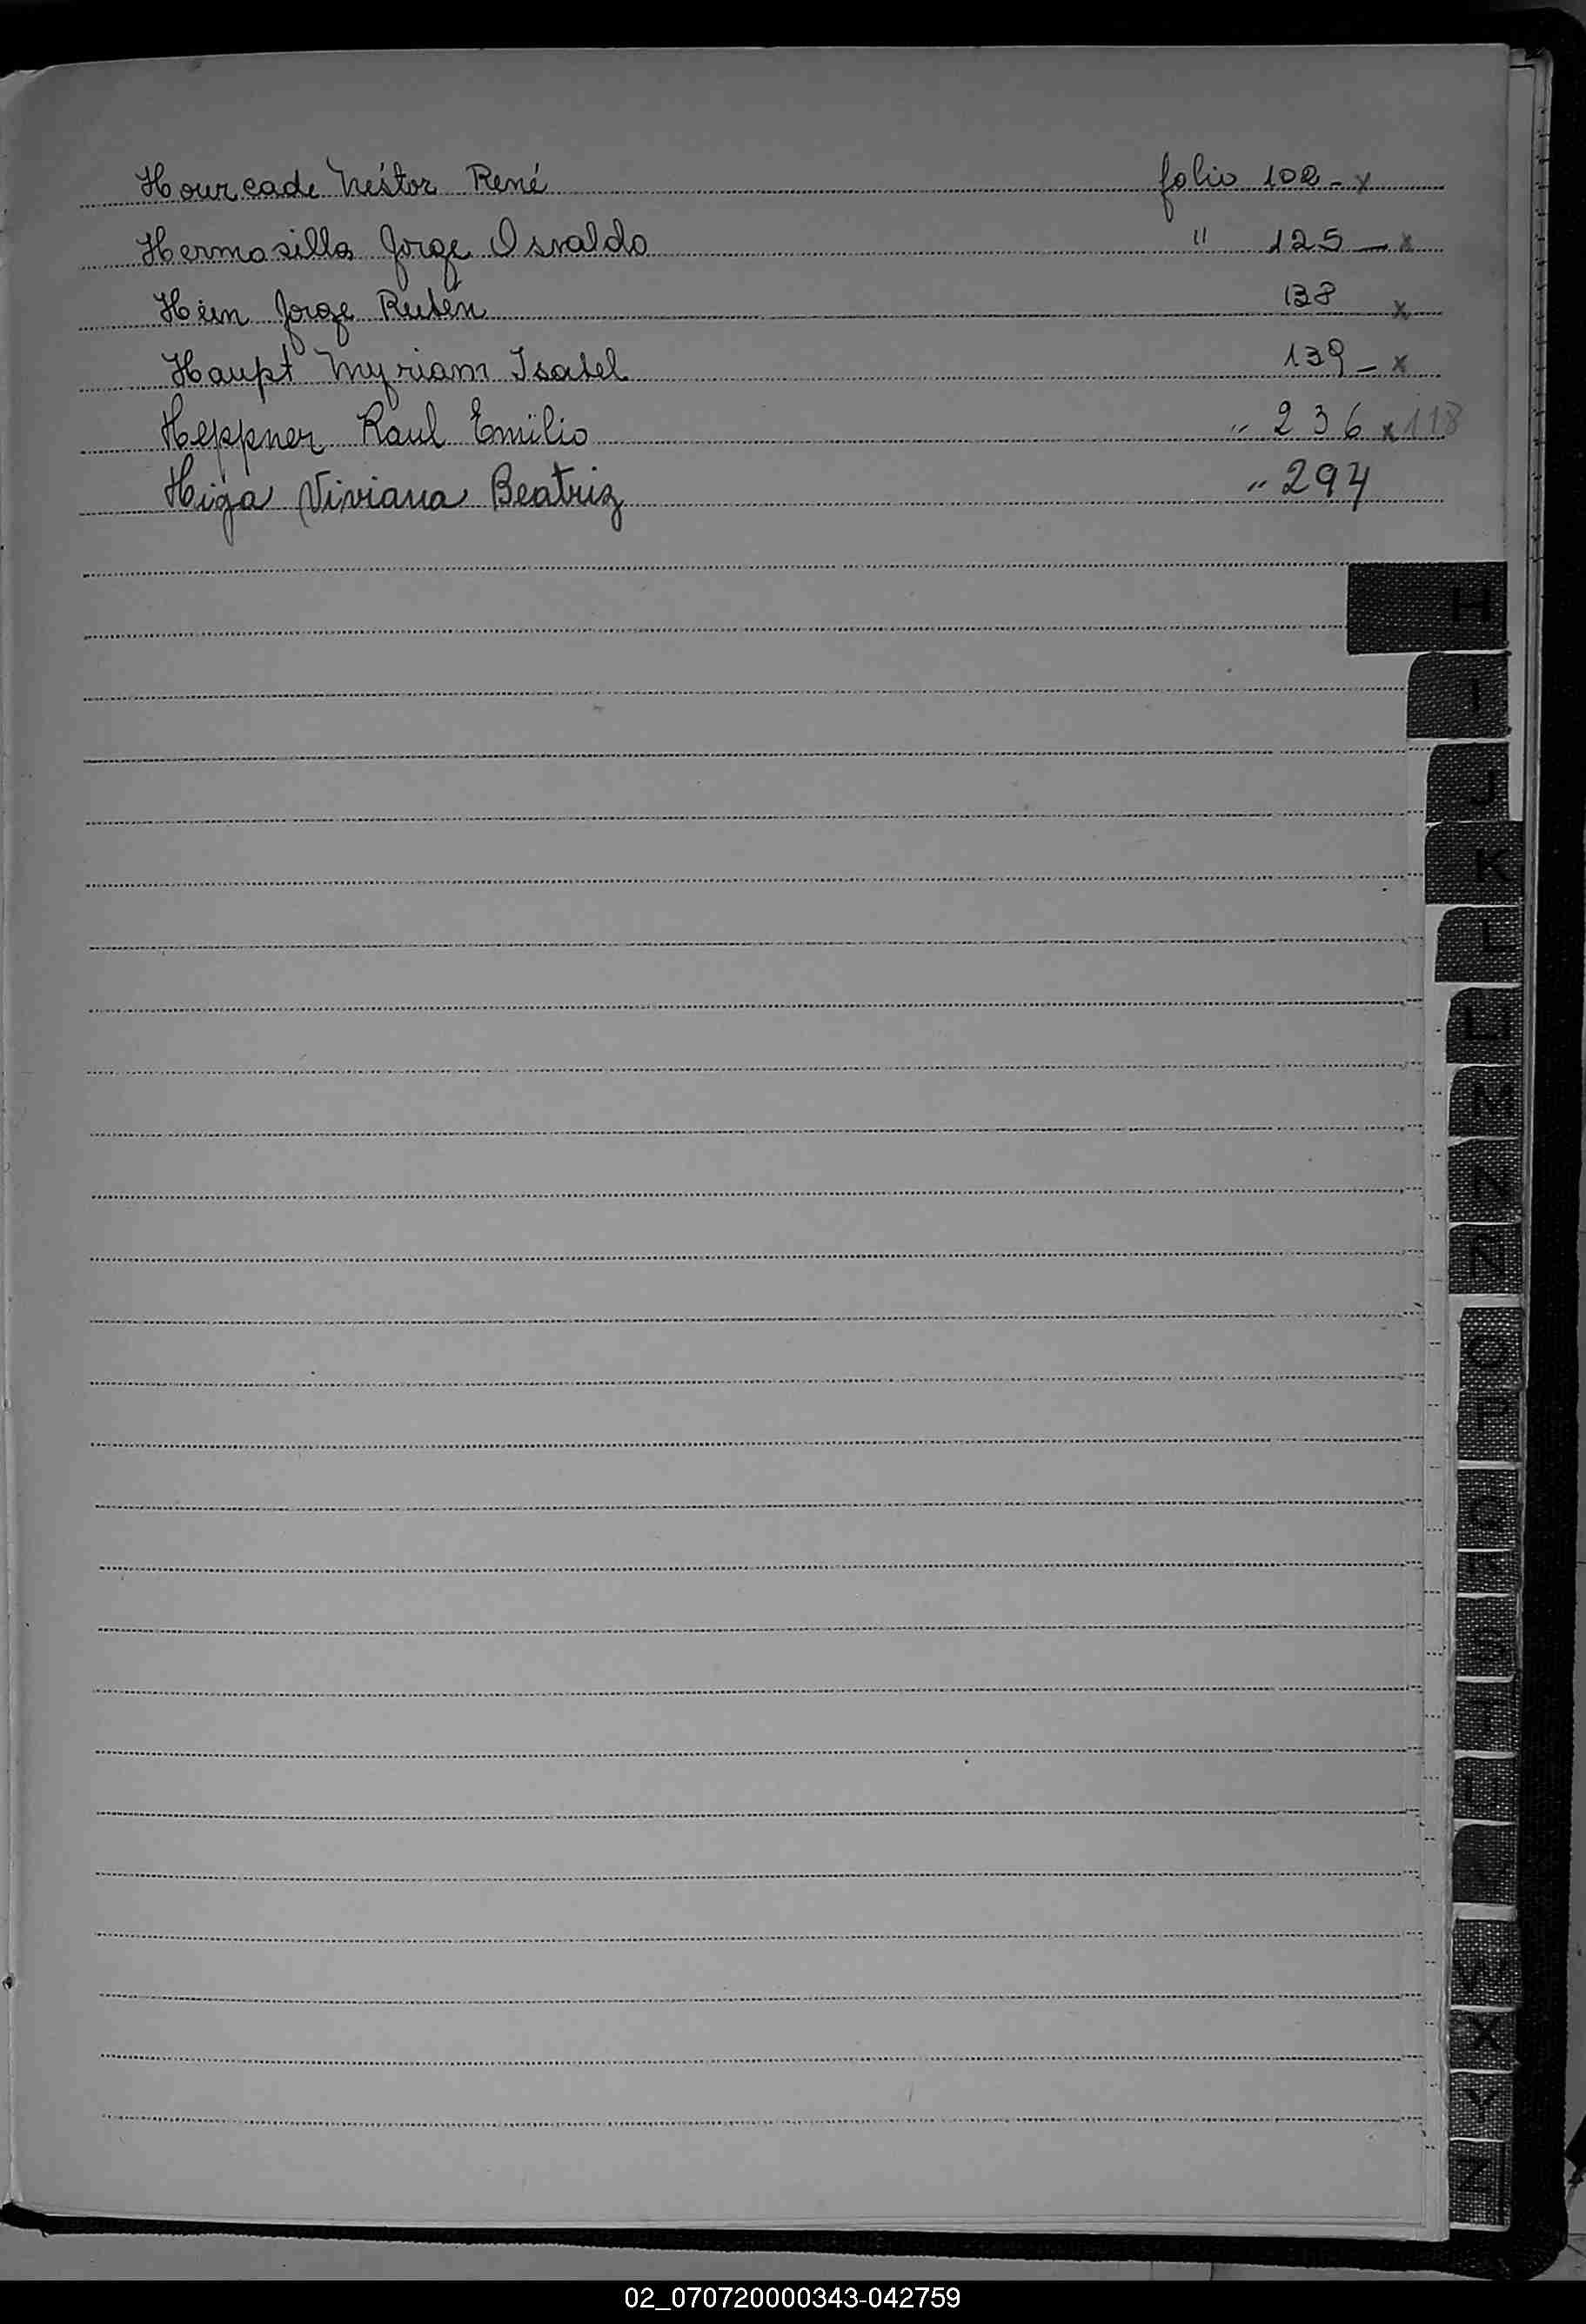 Hourcade Néstor René folio 102 - x
Hermosilla Jorge Osvaldo " 125 — x
Jorge Rubén 138 x
Haupt Myriam Isabel 139 - x
Heppner Raul Emilio " 236 x 118
Higa Viviana Beatriz " 294
H
I
J
K
L
LL
M
N
Ñ
O
P
Q
R
S
T
U
W
X
Y
Z
02_070720000343-042759